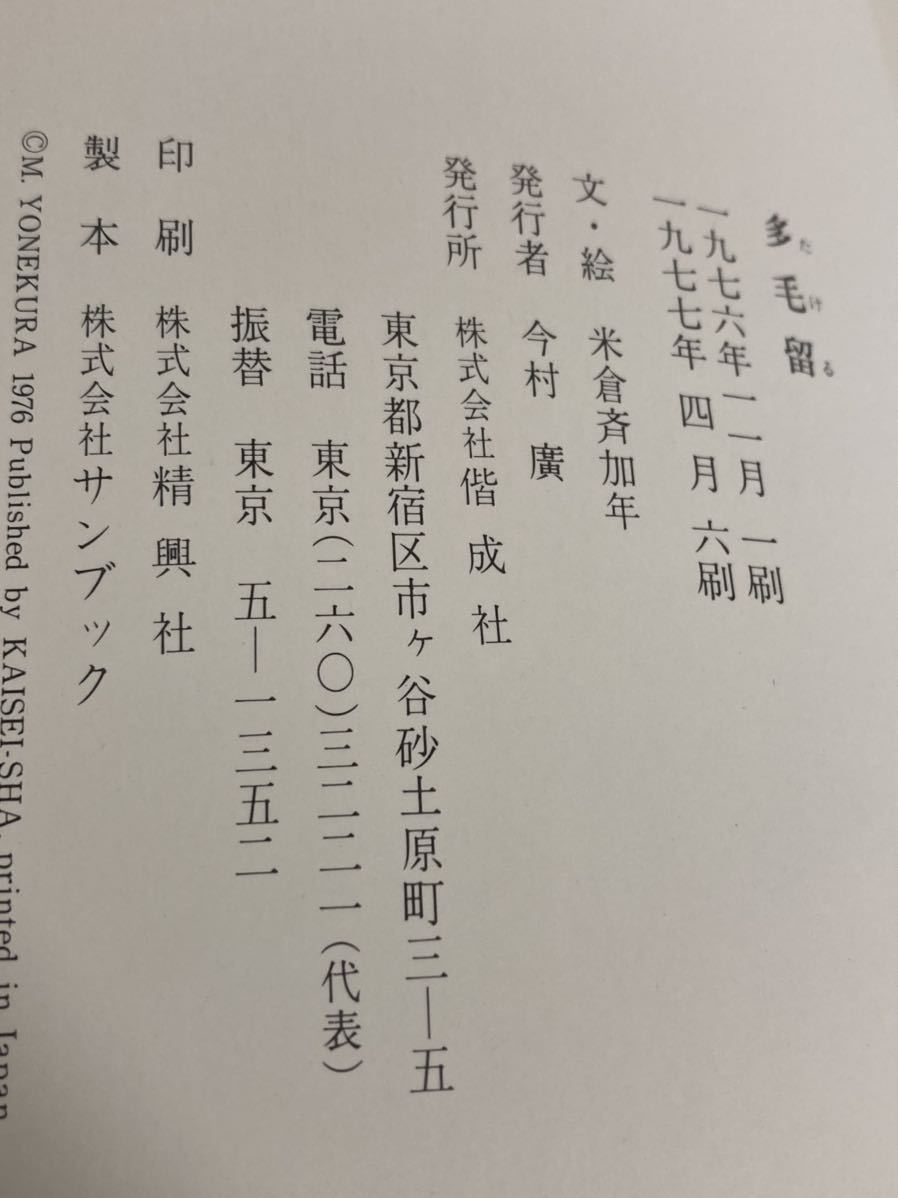 多毛留
たける
一九七六年一一月一刷
一九七七年四月六刷
文・絵 米倉斉加年
発行者 今村廣
発行所 株式会社偕成社
東京都新宿区市ヶ谷砂土原町三—五
電話 東京(二六〇)三二二一(代表)
振替 東京 五—一三五二
印刷 株式会社精興社
製本 株式会社サンブック
©M. YONEKURA 1976 Published by KAISEI-SHA, printed in Japan